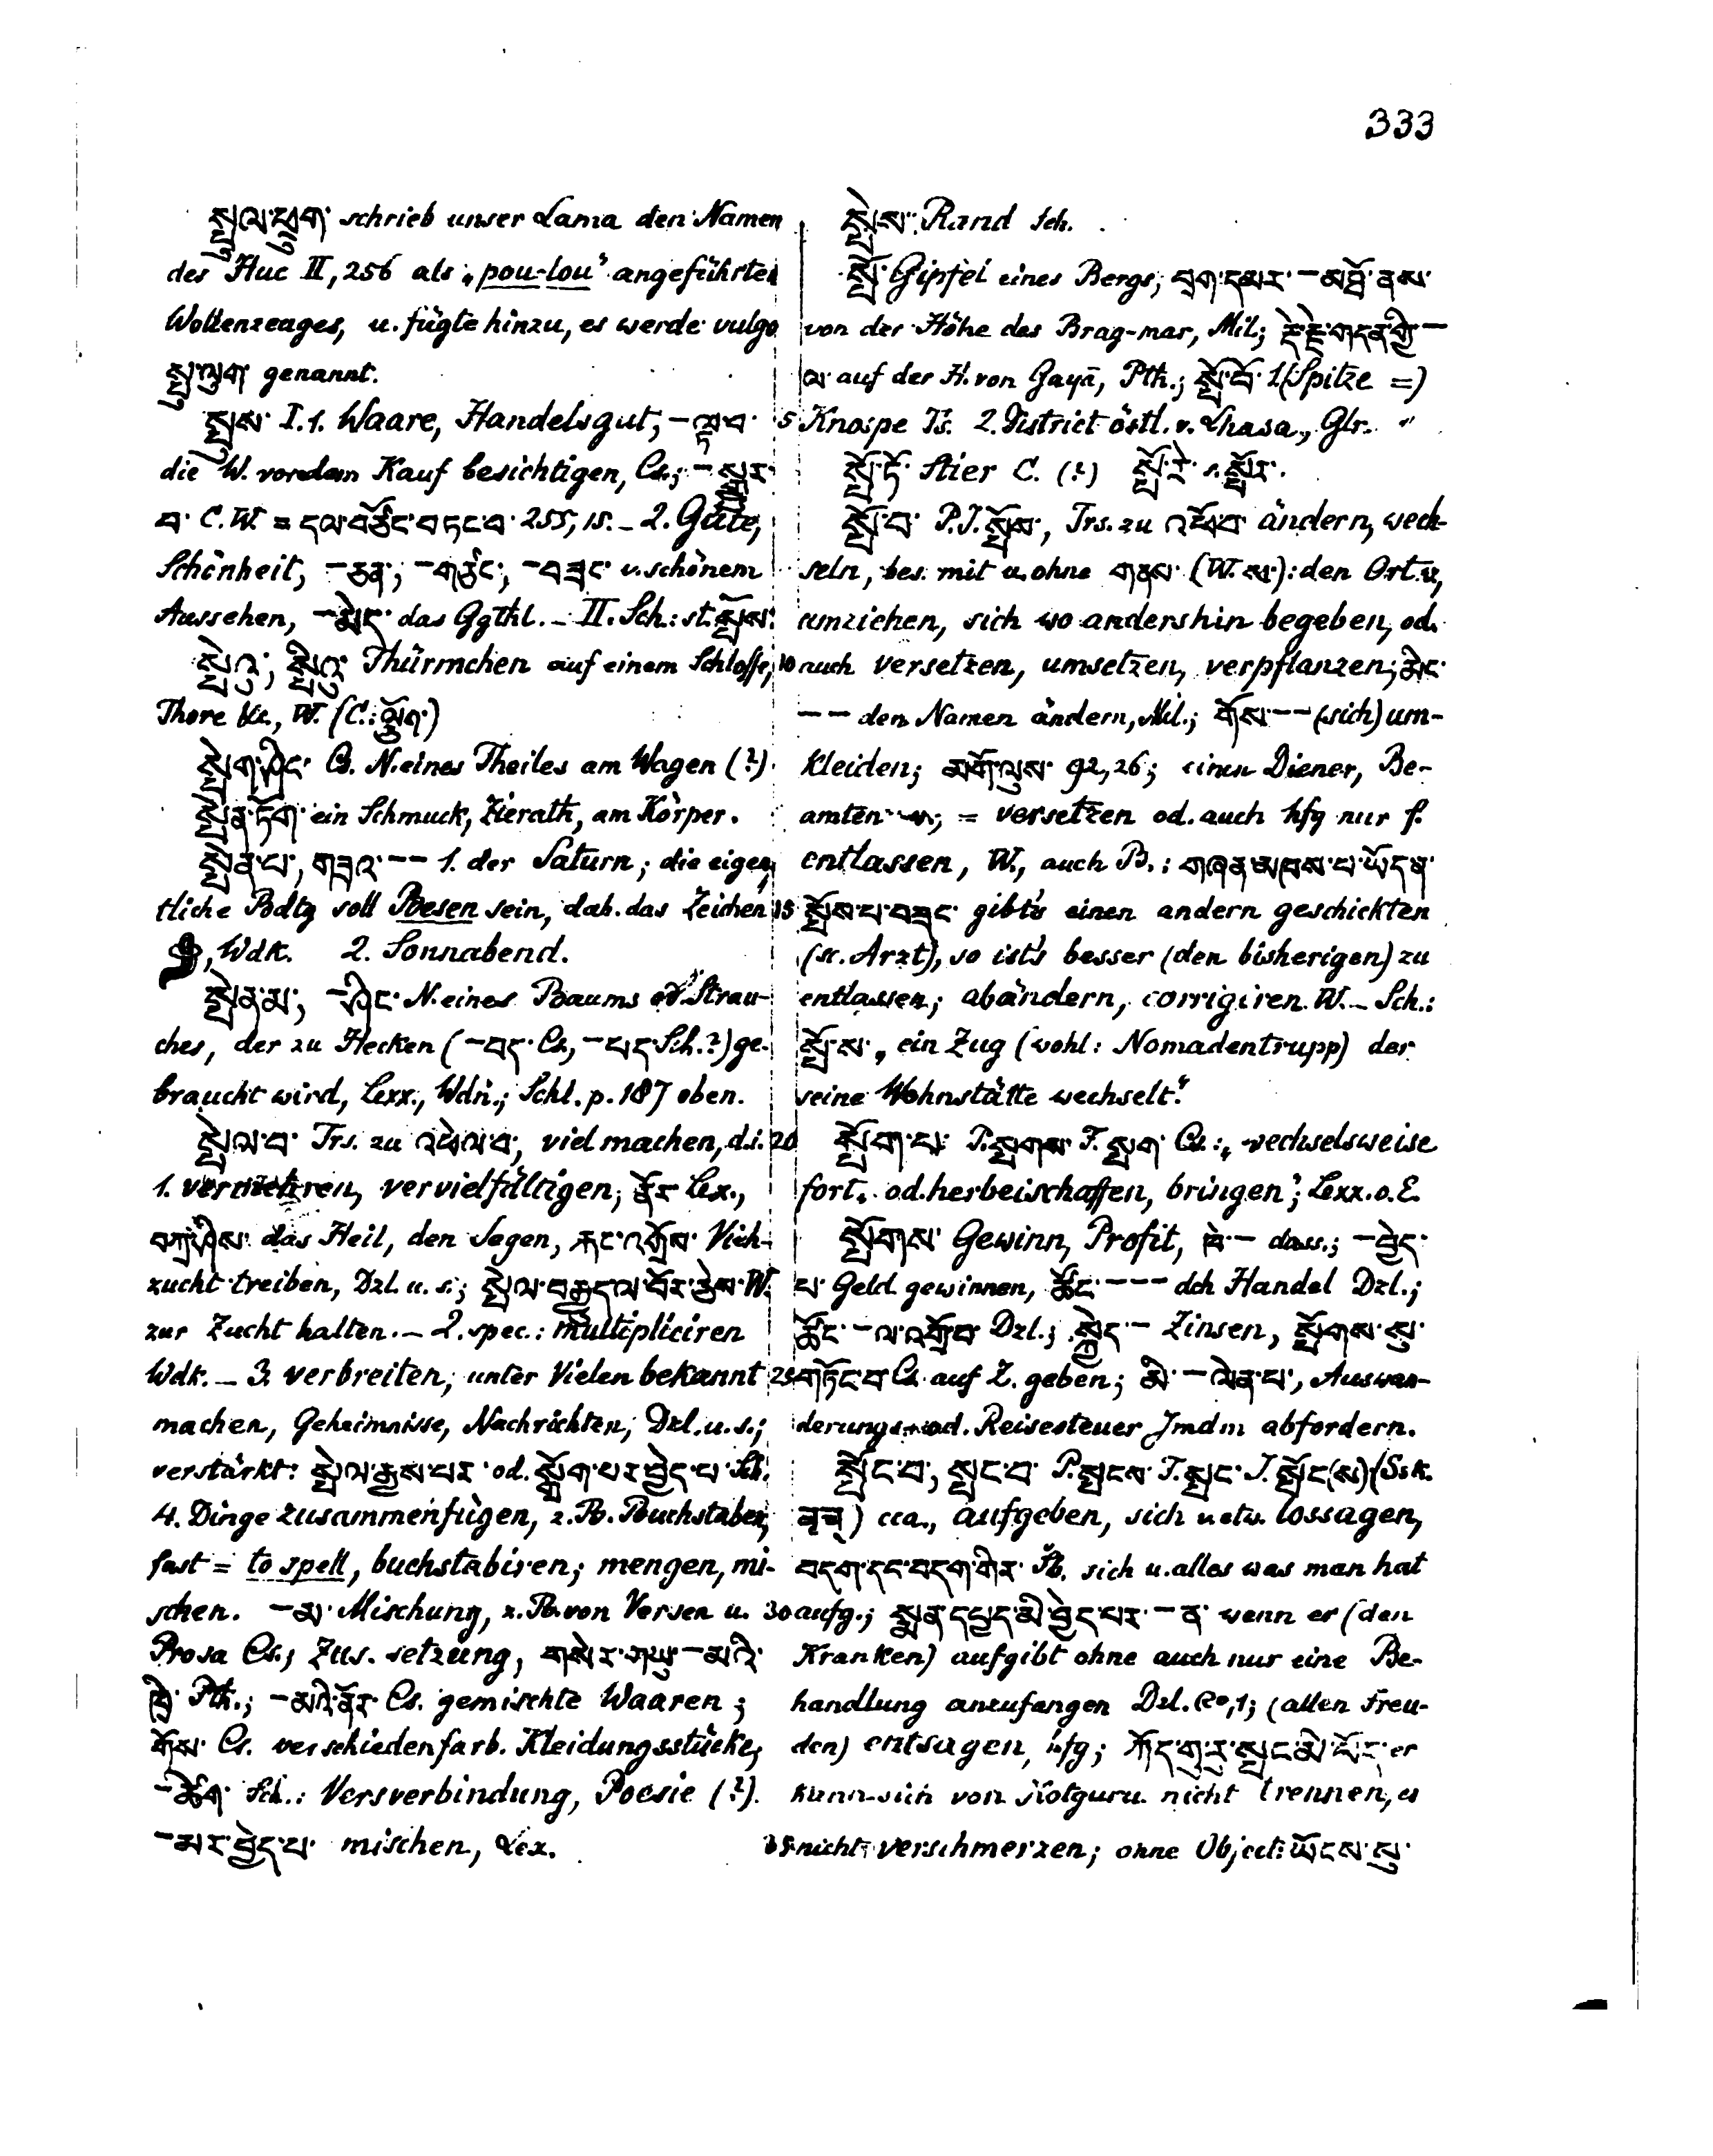 333
སྤྲུལ་ཕྲུག་ schrieb unser Lama den Namen
des Huc II, 256 als „pou-lou" angeführten
Wollenzeuges, u. fügte hinzu, es werde vulgo
genannt.
སྤུས་ I. 1. Waare, Handelsgut; –ལྟ་བ་
die W. vor dem Kauf besichtigen, Cs.; –སྒྱུར་
བ་ C. W = 255, 15. – 2. Güte,
Schönheit, –ཅན་, –གཙང་, –བཟང་ v. schönem
Aussehen, –མེད་ das Ggthl. – II. Sch.: st. སྤོས་
སྤེའུ་, སྤིའུ་ Thürmchen auf einem Schlosse,
Thore &c., W. (C.: )
སྤེག་ཤིང་ Cs. N. eines Theiles am Wagen (?)
སྤེན་ཏོག་ ein Schmuck, Zierath, am Körper.
སྤེན་པ་, གཟའ་ – – 1. der Saturn; die eigen-
tliche Bdtg soll Besen sein, dah. das Zeichen
, Wdk. 2. Sonnabend.
སྤེན་མ་, –ཤིང་ N. eines Baums od. Strau-
ches, der zu Hecken (–བད་ Cs., –པད་ Sch.?) ge-
braucht wird, Lexx., Wdṅ.; Schl. p. 187 oben.
སྤེལ་བ་ Trs. zu འཕེལ་བ་, viel machen, d.i.
1. vermehren, vervielfältigen; ནོར་ Lex.,
བཀྲ་ཤིས་ das Heil, den Segen, རྐང་འགྲོས་ Vieh-
zucht treiben, Dzl. u. s.; སྤེལ་བརྒྱད་ལ་བོར་ཅེས་ W.
zur Zucht halten. – 2. spec.: multipliciren
Wdk. – 3. verbreiten, unter Vielen bekannt
machen, Geheimnisse, Nachrichten, Dzl. u. s.;
verstärkt: སྤེལ་རྒྱས་པར་ od. སྒྲོག་པར་བྱེད་པ་ Sch.
4. Dinge zusammenfügen, z. B. Buchstaben,
fast = to spell, buchstabiren; mengen, mi-
schen. –མ་ Mischung, z. B. von Versen u.
Prosa Cs.; Zus. setzung, གསེར་གཡུ་–མའི་
ཁྲི་ Pth.; –མའི་ནོར་ Cs. gemischte Waaren;
གོས་ Cs. verschiedenfarb. Kleidungsstücke;
–ཚིག་ Sch.: Versverbindung, Poesie (?).
–མར་བྱེད་པ་ mischen, Lex.
སྤེས་ Rand Sch.
སྤོ་ Gipfel eines Bergs; བྲག་དམར་–མཐོ་ནས་
von der Höhe des Brag-mar, Mil.; རྡོ་རྗེ་གདན་གྱི་–
ལ་ auf der H. von Gayā, Pth.; སྤོ་བོ་ 1. (Spitze =)
5 Knospe Ts. 2. District östl. v. Lhasa, Glr.
སྤོ་ཏོ་ Stier C. (?) སྤོ་རེ་ s. སྤོར་.
སྤོ་བ་ P. J. སྤོས་, Trs. zu འཕོ་བ་ ändern, wech-
seln, bes. mit u. ohne གནས་ (W. ས་): den Ort,
umziehen, sich wo andershin begeben, od.
10 auch versetzen, umsetzen, verpflanzen; མིང་
– – den Namen ändern, Mil.; གོས་ – – (sich) um-
kleiden; མགོ་ལུས་ 92, 26; einen Diener, Be-
amten = versetzen od. auch hfg nur f.
entlassen, W., auch B.: གཞན་མཁས་པ་ཡོད་ན་
15 སྤོས་པ་བཟང་ gibt's einen andern geschickten
(sc. Arzt), so ist's besser (den bisherigen) zu
entlassen; abändern, corrigiren W. – Sch.:
སྤོ་ས་ „ ein Zug (wohl: Nomadentrupp) der
seine Wohnstätte wechselt."
20 སྤོག་པ་ P. སྤགས་ F. སྤག་ Cs.: „ wechselsweise
fort- od. herbeischaffen, bringen"; Lexx. o. E.
སྤོགས་ Gewinn, Profit, ཁེ་– dass.; –བྱེད་
པ་ Geld gewinnen, ཚོང་ – – – dch Handel Dzl.;
ཚོང་–ལ་འགྲོ་བ་ Dzl.; སྐྱེད་– Zinsen, སྤོགས་སུ་
25 གཏོང་བ་ Cs. auf Z. geben; མི་–ལེན་པ་, Auswan-
derungs- od. Reisesteuer Jmdm abfordern.
སྤོང་བ་, སྤང་བ་ P. སྤངས་ F. སྤང་ J. སྤོང(ས) (Ssk.
) cca., aufgeben, sich v. etw. lossagen,
བདག་དང་བདག་གིར་ B. sich u. alles was man hat
30 aufg.; སྨན་དཔྱད་མི་བྱེད་པར་–ན་ wenn er (den
Kranken) aufgibt ohne auch nur eine Be-
handlung anzufangen Dzl. , 1; (allen Freu-
den) entsagen, hfg; ཀོད་གུ་རུ་སྤང་མི་ཕོད་ er
kann sich von Kotguru nicht trennen, es
35 nicht verschmerzen; ohne Object: ཡོངས་སུ་